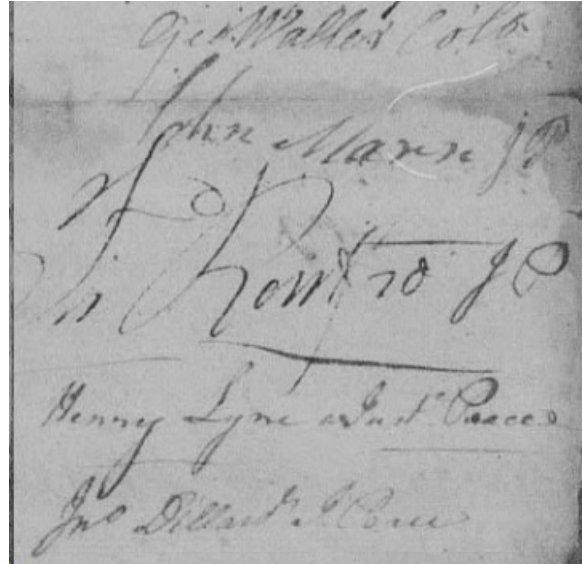 Geo Waller Colo
John Marr JP
Jno Rentfro J P
Henry Lyne a Just. Peace
Jno Dillard J. Peace